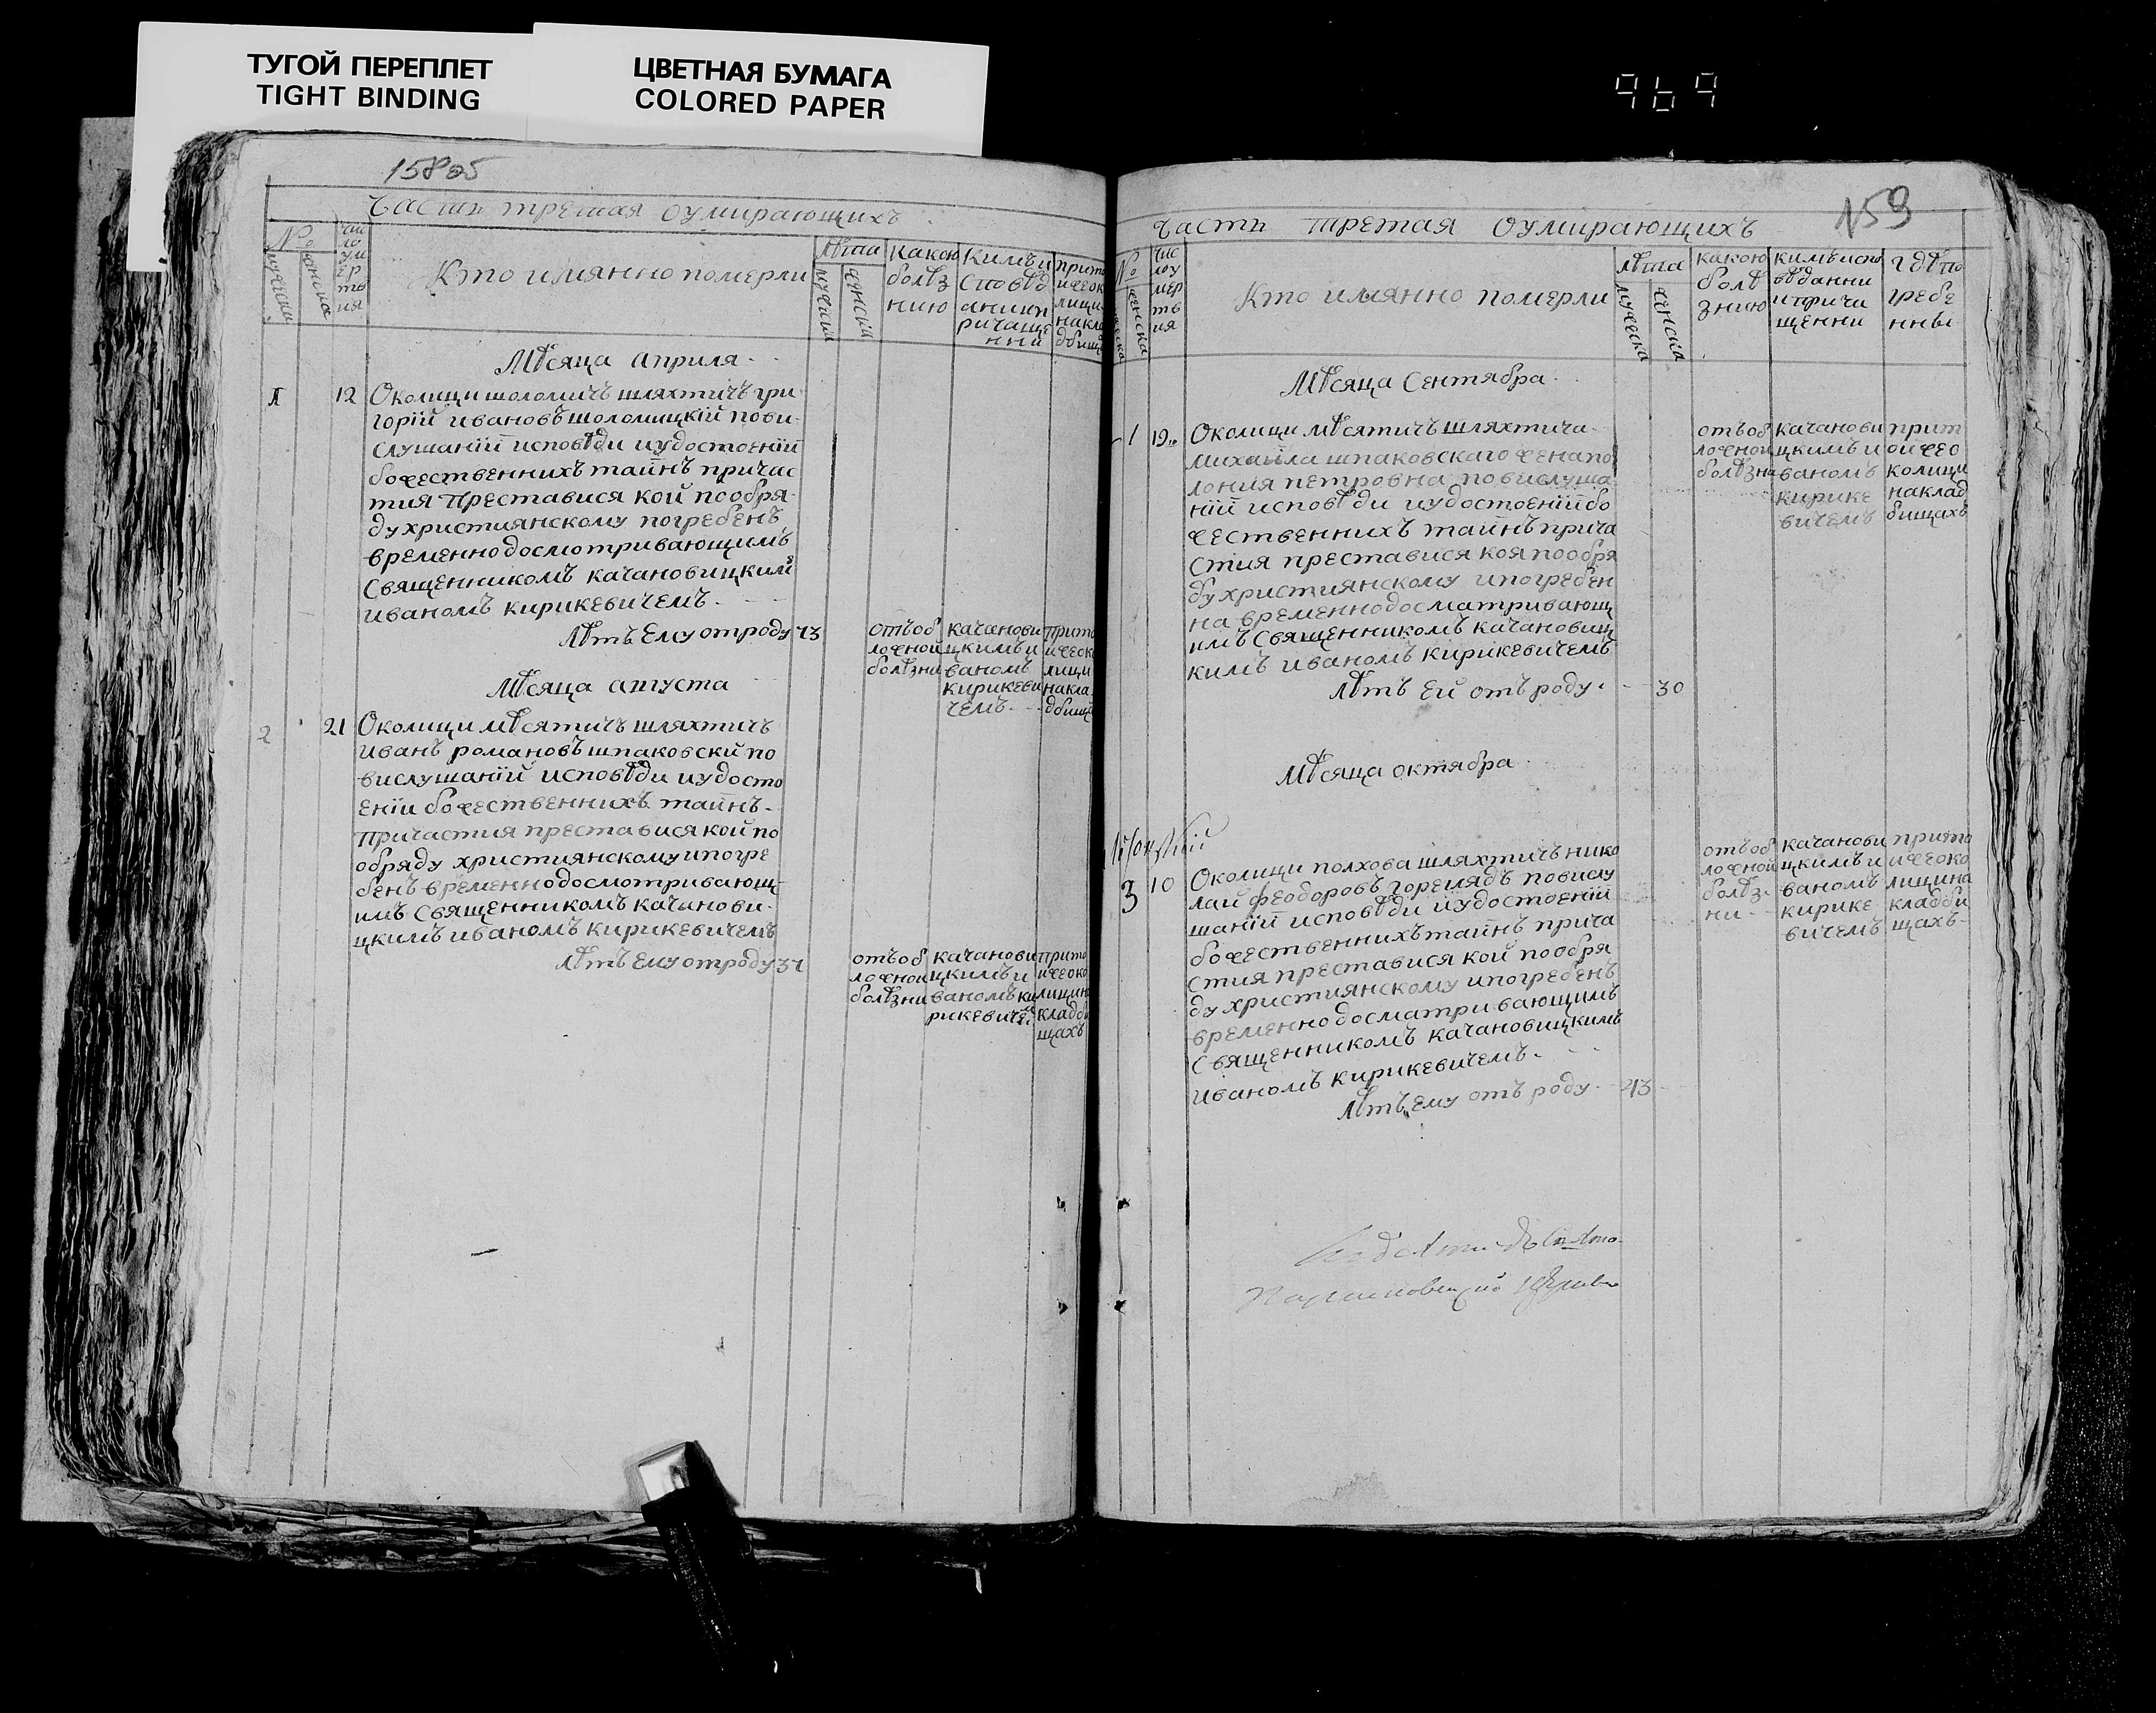 ТУГОЙ ПЕРЕПЛЕТ
TIGHT BINDING
ЦВЕТНАЯ БУМАГА
COLORED PAPER
969
158об
Часть третая оумирающихъ
№
мужеска
женска
чис
ло
ум
ер
тв
ия
Кто имянно померли
лѣта
мужескїй
женскїй
какою
болѣз
нию
Кимъ и
сповѣд
ани и п
ричаще
нни
прито
й же ок
лици
накла
дбищ
Мѣсяца Априля
1 12 Околици шоломичъ шляхтичъ гри
горїй ивановъ шоломицкїй по ви
слушанїй исповѣди и удостоенїй
божественнихъ таинъ причас
тия преставися кой по обря
ду християнскому погребенъ
временно досмотривающимъ
Священникомъ качановицким
иваномъ кирикевичемъ
Лѣтъ Ему от роду 73
отъ об
ложной
болѣзни
качанови
цкимъ и
ваномъ
кирикеви
чемъ
прито
й же око
лици
накла
дбищ
Мѣсяца августа
2 21 Околици мѣсятичъ шляхтичъ
иванъ романовъ шпаковскй по
вислушанїй исповѣди и удосто
енїи божественнихъ таинъ
причастия преставися кой по
обряду християнскому и погре
бенъ временно досмотривающ
имъ Священникомъ качанови
цкимъ иваномъ кирикевичемъ
Лѣтъ Ему от роду 37
отъ об
ложной
болѣзни
качанови
цкимъ и
ваномъ ки
рикевиче
прито
й же око
лици на
кладби
щахъ
159
Часть третая оумирающихъ
№
женска
чис
ло у
мер
тв
ия
Кто имянно померли
лѣта
мужеска
женскїа
какою
болѣ
знию
кимъ испо
вѣданни
и причи
щенни
гдѣ по
гребе
нны
Мѣсяца Сентября
1 19 Околици мѣсятичъ шляхтича
михаила шпаковскаго жена по
лония петровна по вислуша
нїй исповѣди и удостоенїй бо
жественнихъ таинъ прича
стия преставися коя по обря
ду християнскому и погребен
на временно досматривающ
имъ Священникомъ качановиц
кимъ иваномъ кирикевичемъ
Лѣтъ Ей отъ роду 30
отъ об
ложной
болѣзни
качанови
цкимъ и
ваномъ
кирике
вичемъ
прит
ой же о
колици
наклад
бищахъ
Мѣсяца октября
3 10 Околици полхова шляхтичъ нико
лай феодоровъ горегляд по вислу
шанїй исповѣди и удостоенїй
божественнихъ таинъ прича
стия преставися кой по обря
ду християнскому и погребенъ
временно досматривающимъ
Священникомъ качановицкимъ
иваномъ кирикевичемъ
Лѣтъ Ему отъ роду 43
отъ об
ложной
болѣз
ни
качанови
цкимъ и
ваномъ
кирике
вичемъ
прито
й же око
лици на
кладби
щахъ